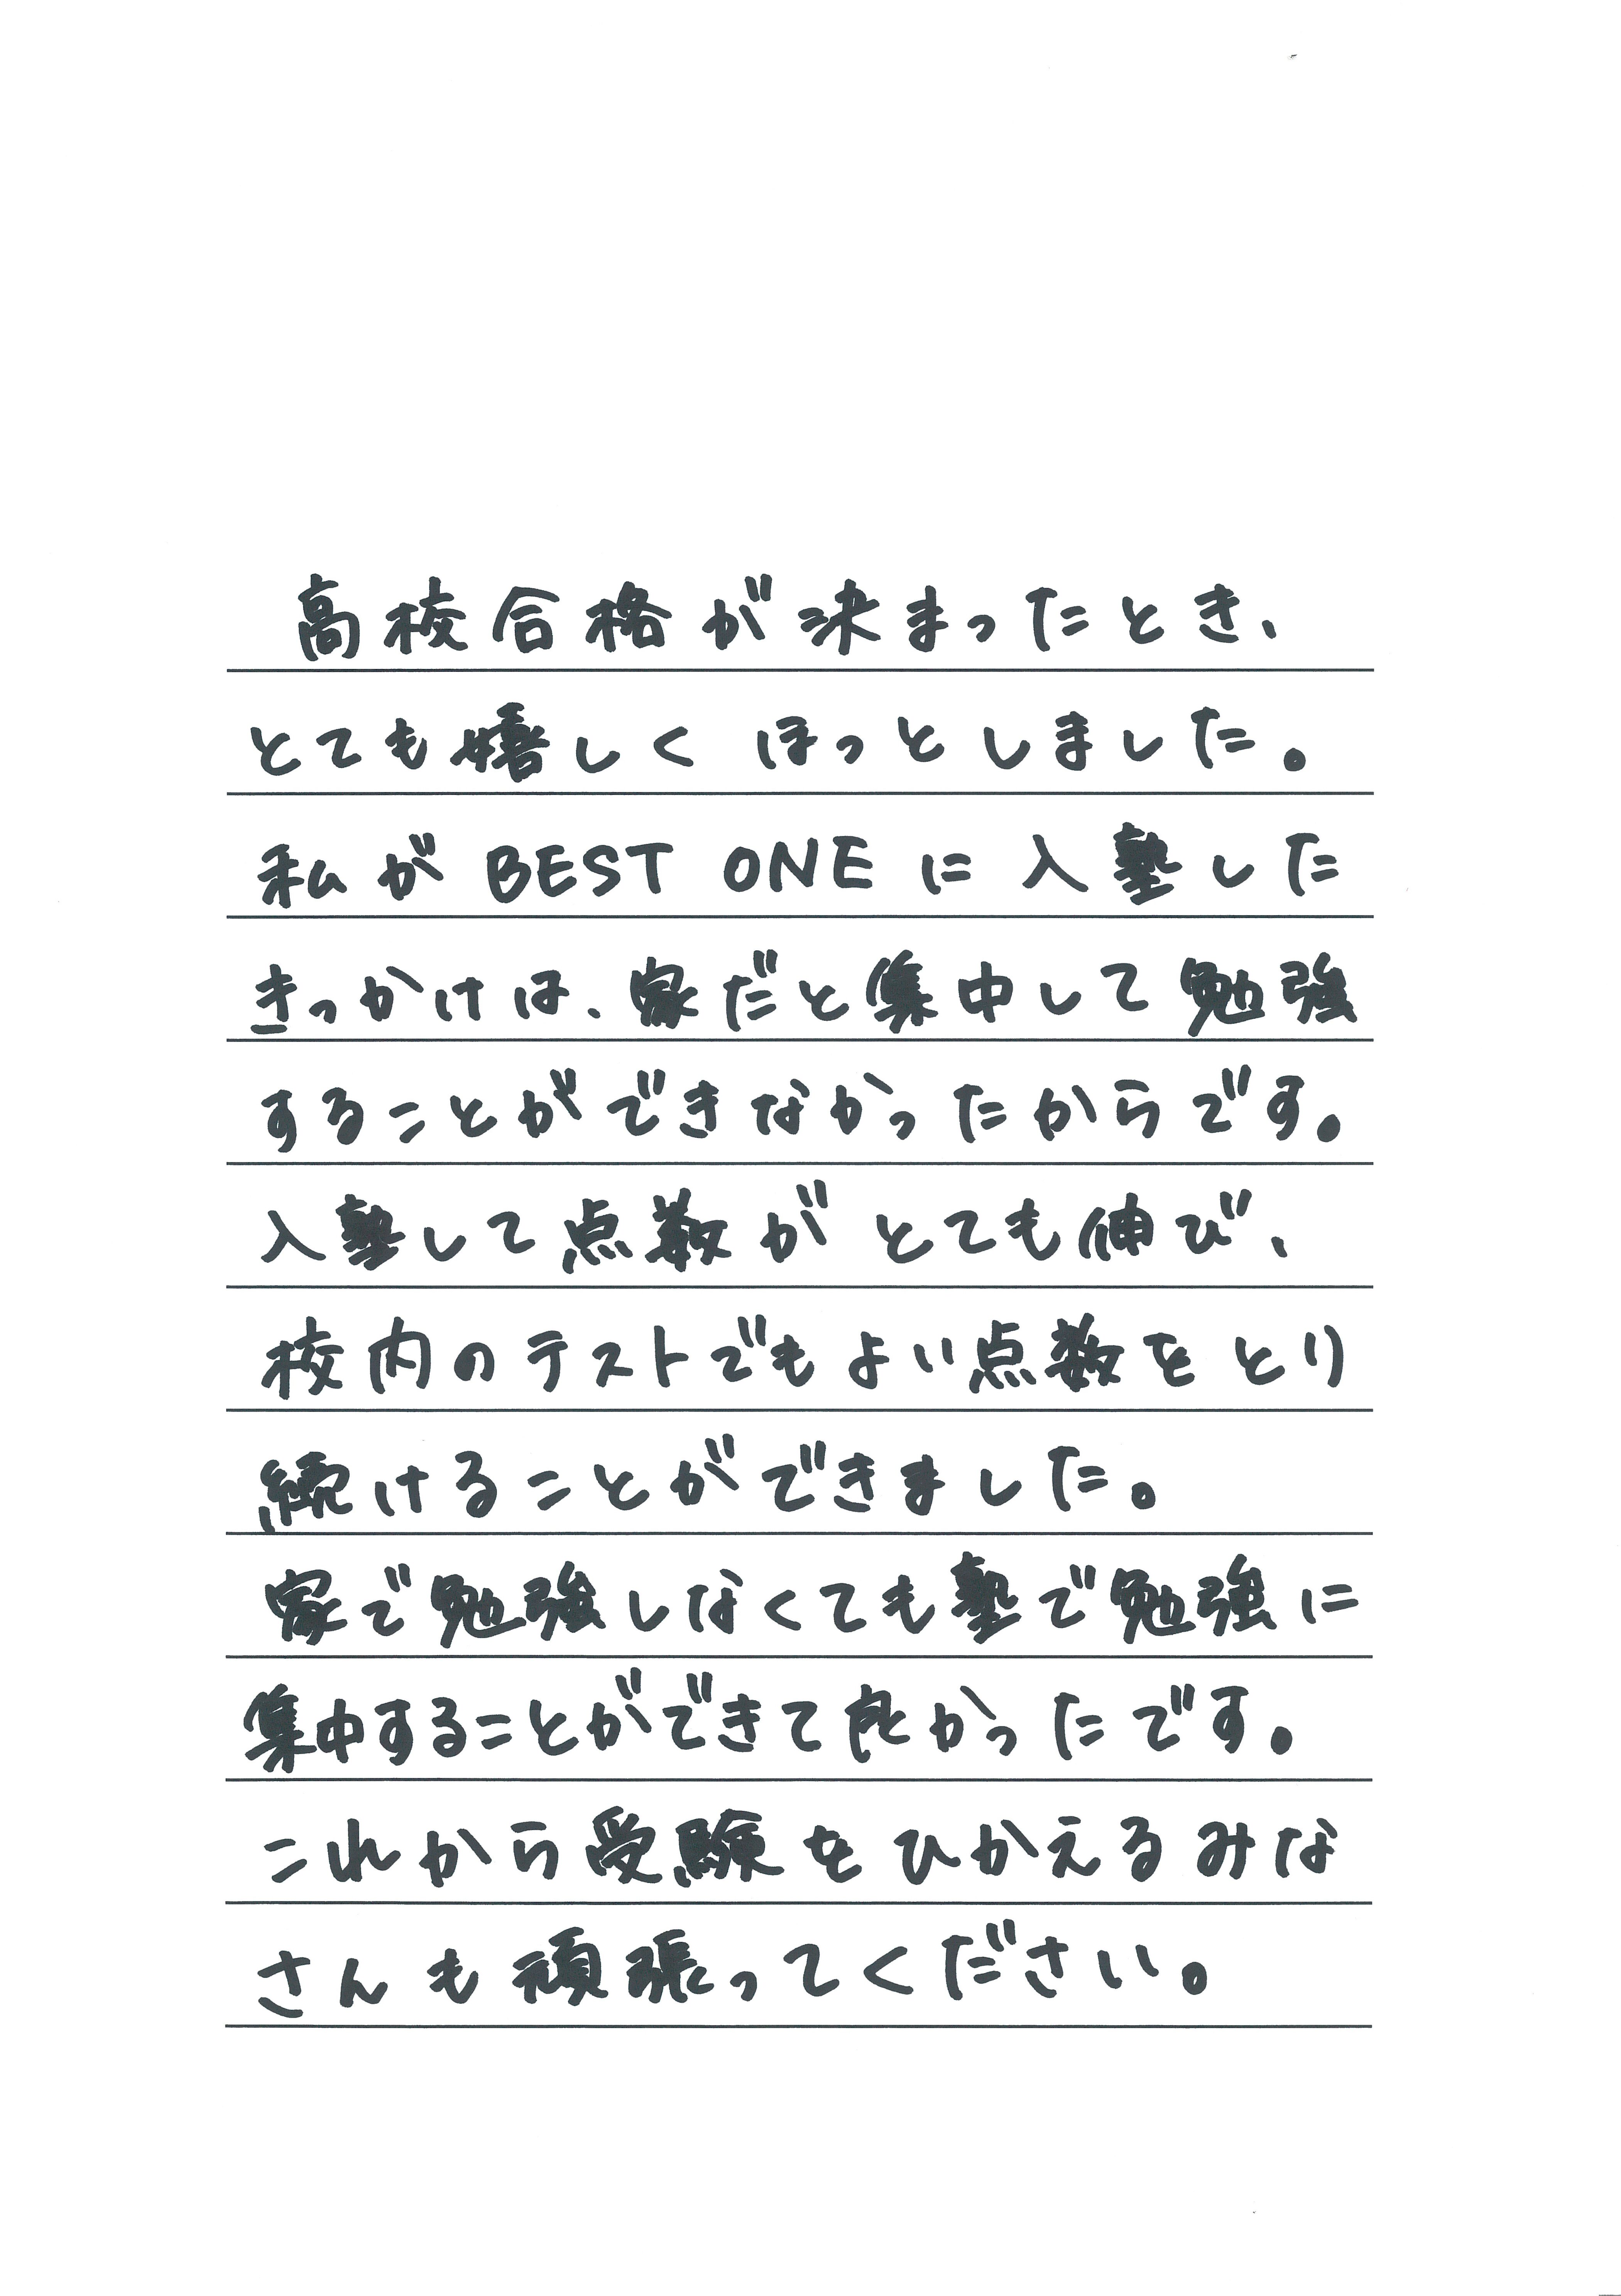 高校合格が決まったとき、
とても嬉しく ほっとしました。
私が BEST ONE に入塾した
きっかけは、家だと集中して勉強
することができなかったからです。
入塾して点数が とても伸び、
校内のテストでもよい点数をとり
続けることができました。
家で勉強しなくても塾で勉強に
集中することができて良かったです。
これから受験をひかえるみな
さんも頑張ってください。